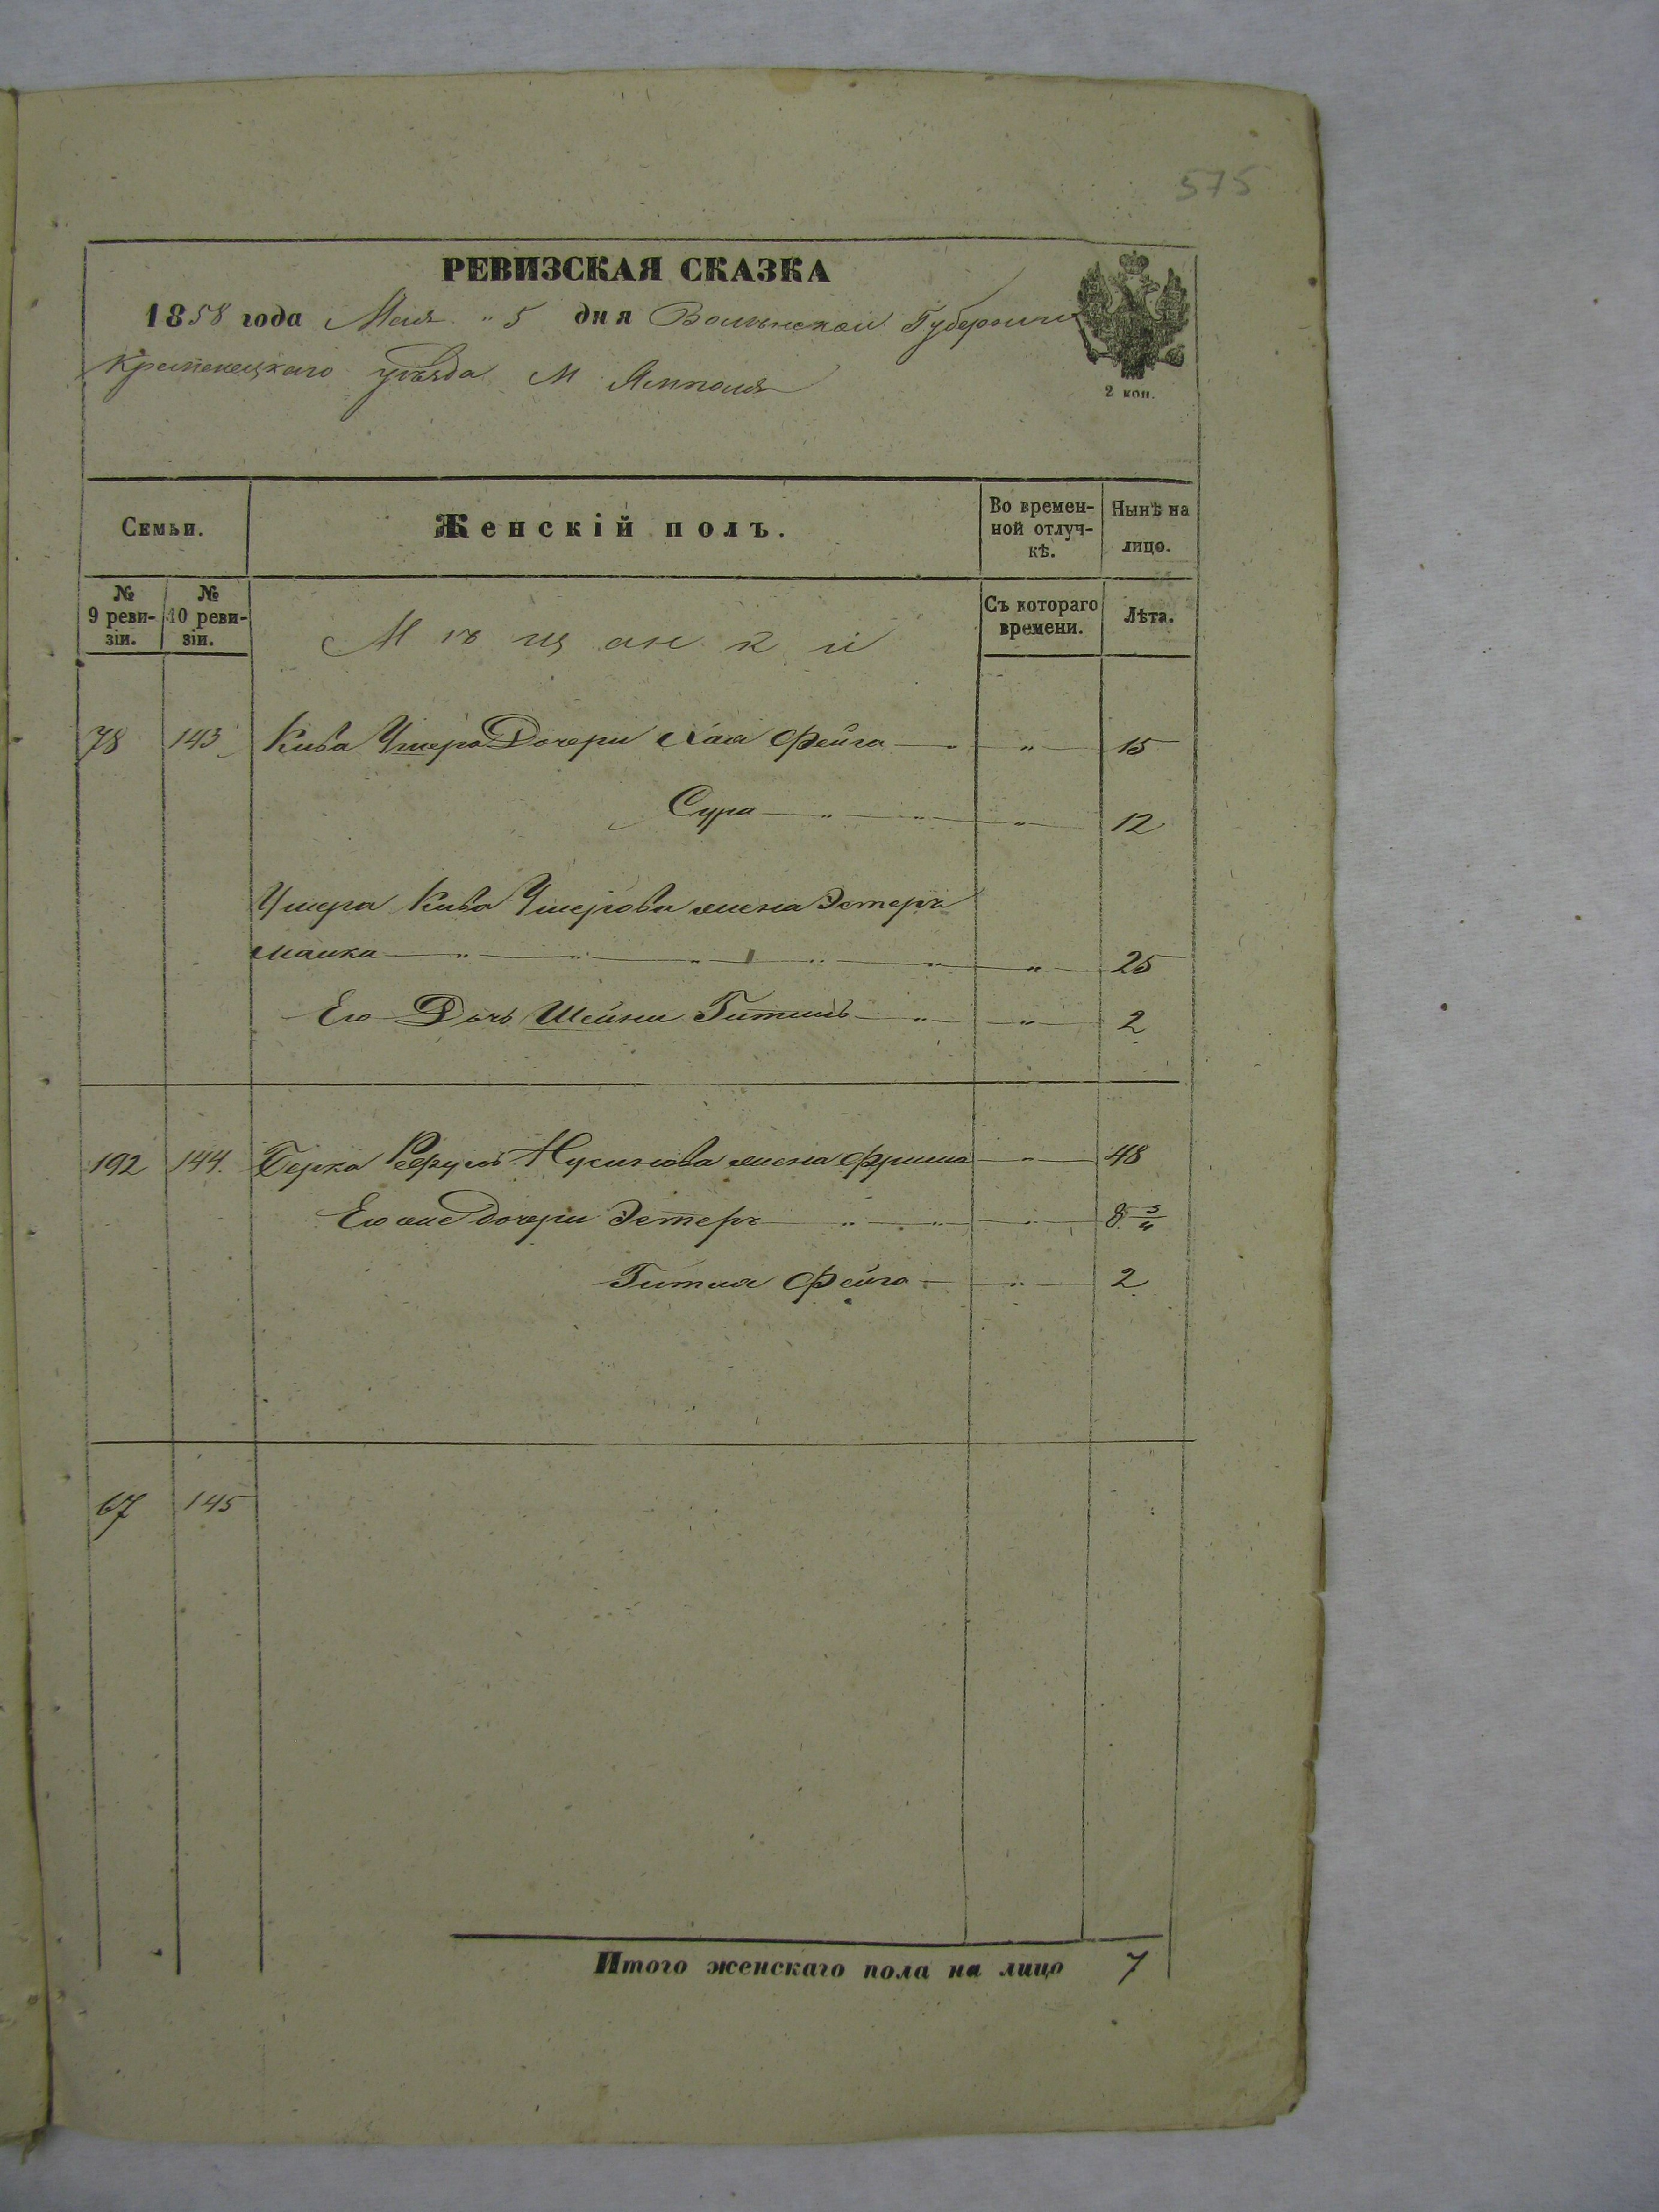 575
РЕВИЗСКАЯ СКАЗКА
1858 года Мая 5 дня Волынской Губернии
Кременецкаго уѣзда М Ямполя
2 коп.
Семьи.
Женскій полъ.
Во времен-
ной отлуч-
кѣ.
Нынѣ на
лицо.
№
9 реви-
зіи.
№
10 реви-
зіи.
Мѣщанки
Съ котораго
времени.
Лѣта.
78 143 Кива Умера Дочери Хая Фейга — " — 15
Сура — " — " — " — 12
Умера Кива Умерова жена Эстеръ
Малка — " — " — 25
Его Дочь Шейни Гитель — " — " — 2
192 144. Берка Нусимова жена Фрима — " — 48
Его же дочери Эстеръ — " — " — " — 8 3/4
Гитля Фейга — " — 2
67 145
Итого женскаго пола на лицо 7